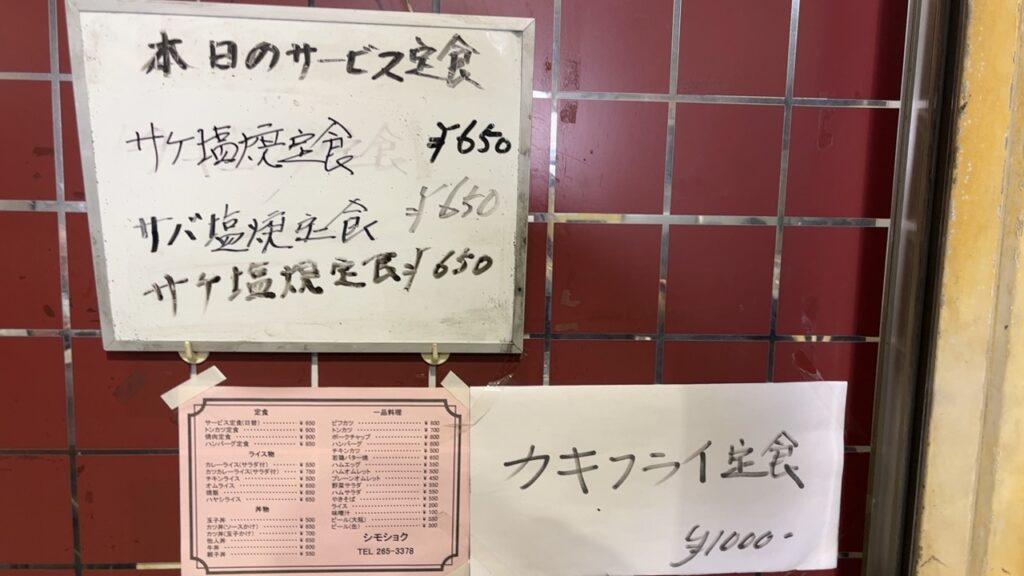 本日のサービス定食
サケ塩焼定食 ¥650
サバ塩焼定食 ¥650
サケ塩焼定食 ¥650
定食
サービス定食(日替) ¥650
トンカツ定食 ¥900
焼肉定食 ¥900
ハンバーグ定食 ¥850
ライス物
カレーライス(サラダ付) ¥550
カツカレーライス(サラダ付) ¥750
チキンライス ¥500
オムライス ¥650
焼飯 ¥650
ハヤシライス ¥650
丼物
玉子丼 ¥500
カツ丼(ソースかけ) ¥650
カツ丼(玉子かけ) ¥700
他人丼 ¥650
牛丼 ¥600
親子丼 ¥550
一品料理
ビフカツ ¥800
トンカツ ¥600
ポークチャップ ¥600
ハンバーグ ¥600
チキンカツ ¥500
若鶏バター焼 ¥650
ハムエッグ ¥350
ハムオムレット ¥500
プレーンオムレット ¥450
野菜サラダ ¥550
ハムサラダ ¥550
やきそば ¥550
ライス ¥200
味噌汁 ¥100
ビール(大瓶) ¥550
ビール(缶) ¥300
シモショク
TEL 265-3378
カキフライ定食
¥1000-